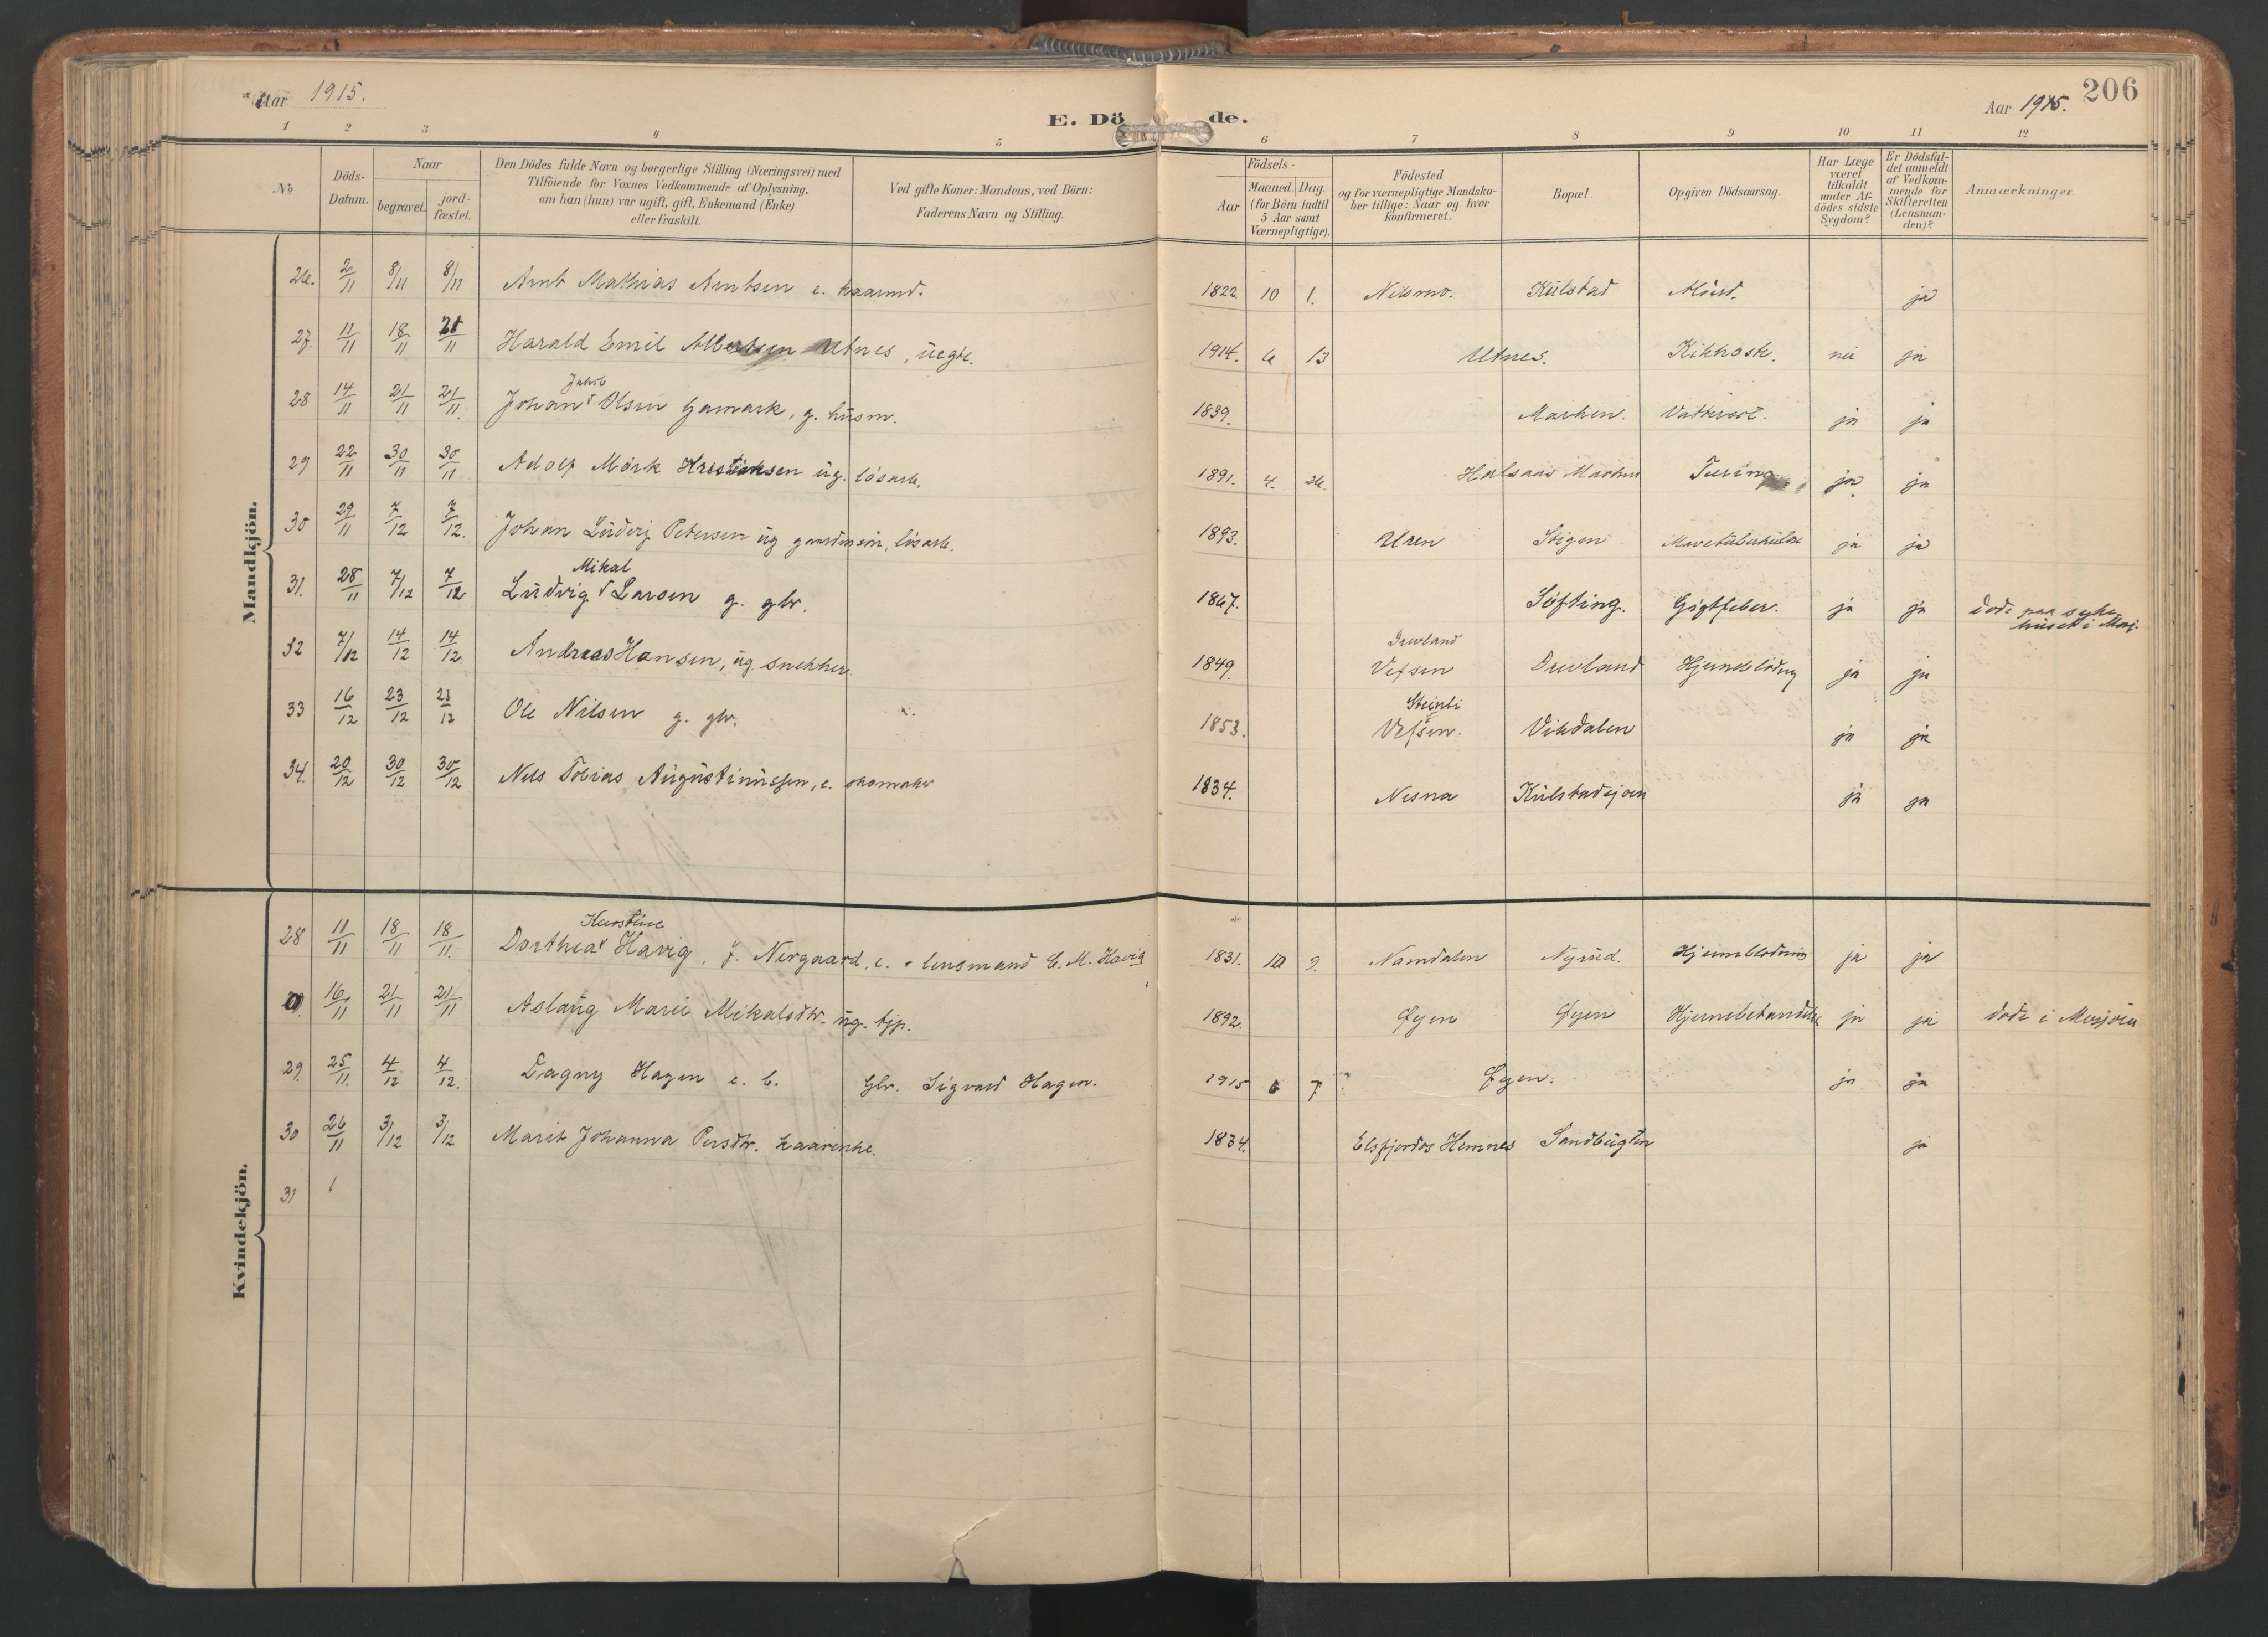 Aar 1915.
E. Döde.
Aar 1915.
206
1 2 3 4 5 6 7 8 9 10 11 12
No
Döds-Datum.
Naar
begravet.
jord-fæstet.
Den Dödes fulde Navn og borgerlige Stilling (Næringsvei) med
Tilföiende for Voxnes Vedkommende af Oplysning,
om han (hun) var ugift, gift, Enkemand (Enke)
eller fraskilt.
Ved gifte Koner: Mandens, ved Börn:
Faderens Navn og Stilling.
Födsels-
Aar
Maaned. Dag.
(for Börn indtil
5 Aar samt
Værnepligtige).
Födested
og for værnepligtige Mandska-
ber tillige: Naar og hvor
konfirmeret.
Bopæl.
Opgiven Dödsaarsag.
Har Læge
været
tilkaldt
under Af-
dödes sidste
Sygdom?
Er Dödsfal-
det anmeldt
af Vedkom-
mende for
Skifteretten
(Lensman-
den)?
Anmærkninger.
Mandkjön.
26. 2/11 8/11 8/11 Arnt Mathias Arntsen e. kaarmd. 1822. 10 1. Kulstad ja
27. 11/11 18/11 21/11 Harald Emil Albertsen Utnes, uegte. 1914. 6 13 Utnes. Kikhoste. nei ja
28 14/11 21/11 21/11 Johan Jakob Olsen Gamark, g. husm. 1839. Marken. Vattersot. ja ja
29 22/11 30/11 30/11 Adolf Mörk Kristensen ug. lösarb. 1891. 4. 26. Halsaas Marken Tæring ja ja
30 29/11 7/12 7/12. Johan Ludvig Petersen ug gaardmsön, lösarb. 1893. Uren Stigen Mavetuberkulose ja ja
31. 28/11 7/12 7/12 Ludvig Mikal Larsen g. gbr. 1867. Söfting. Gigtfeber. ja ja döde paa syke-
huset i Mosj.
32 7/12 14/12 14/12. Andreas Hansen, ug snekker. 1849. Drevland Vefsen Drevland Hjerneblödning ja ja
33 16/12 23/12 23/12 Ole Nilsen g. gbr. 1853. Steinli Vefsen. Vikdalen ja ja
34. 20/12 30/12 30/12 Nils Tobias Augustinussen, e. skomaker 1834. Nesna Kulstadsjöen ja ja
Kvindekjön.
28 11/11 18/11 18/11. Dorthea Karstine Havig, f. Nergaard, e. e lensmand C. M. Havig 1831. 10 9. Namdalen Nyrud. Hjerneblödning ja ja
16/11 21/11 21/11 Aslaug Marie Mikalsdtr. ug. tjp. 1892. Öyen Öyen Hjernebetændelse ja ja döde i Mosjöen
29. 25/11. 4/12 4/12. Dagny Hagen e. b. Gbr. Sigvard Hagen. 1915 6 7 Öyen. ja ja
30 26/11 3/12 3/12 Marit Johanna Persdtr. kaarenke. 1834. Elsfjorden Hemnes Sandbugten ja
31